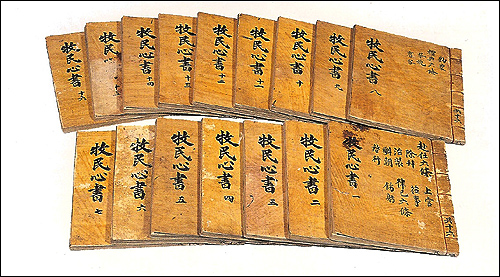 牧民心書 八
牧民心書 九
牧民心書 十
牧民心書 十一
牧民心書 十二
牧民心書 十三
牧民心書 十四
牧民心書
牧民心書
赴任六條 上官
除拜 莅事
治裝 律己六條
辭朝 飭躬
啓行
牧民心書 一
牧民心書 二
牧民心書 三
牧民心書 四
牧民心書 五
牧民心書 六
牧民心書 七